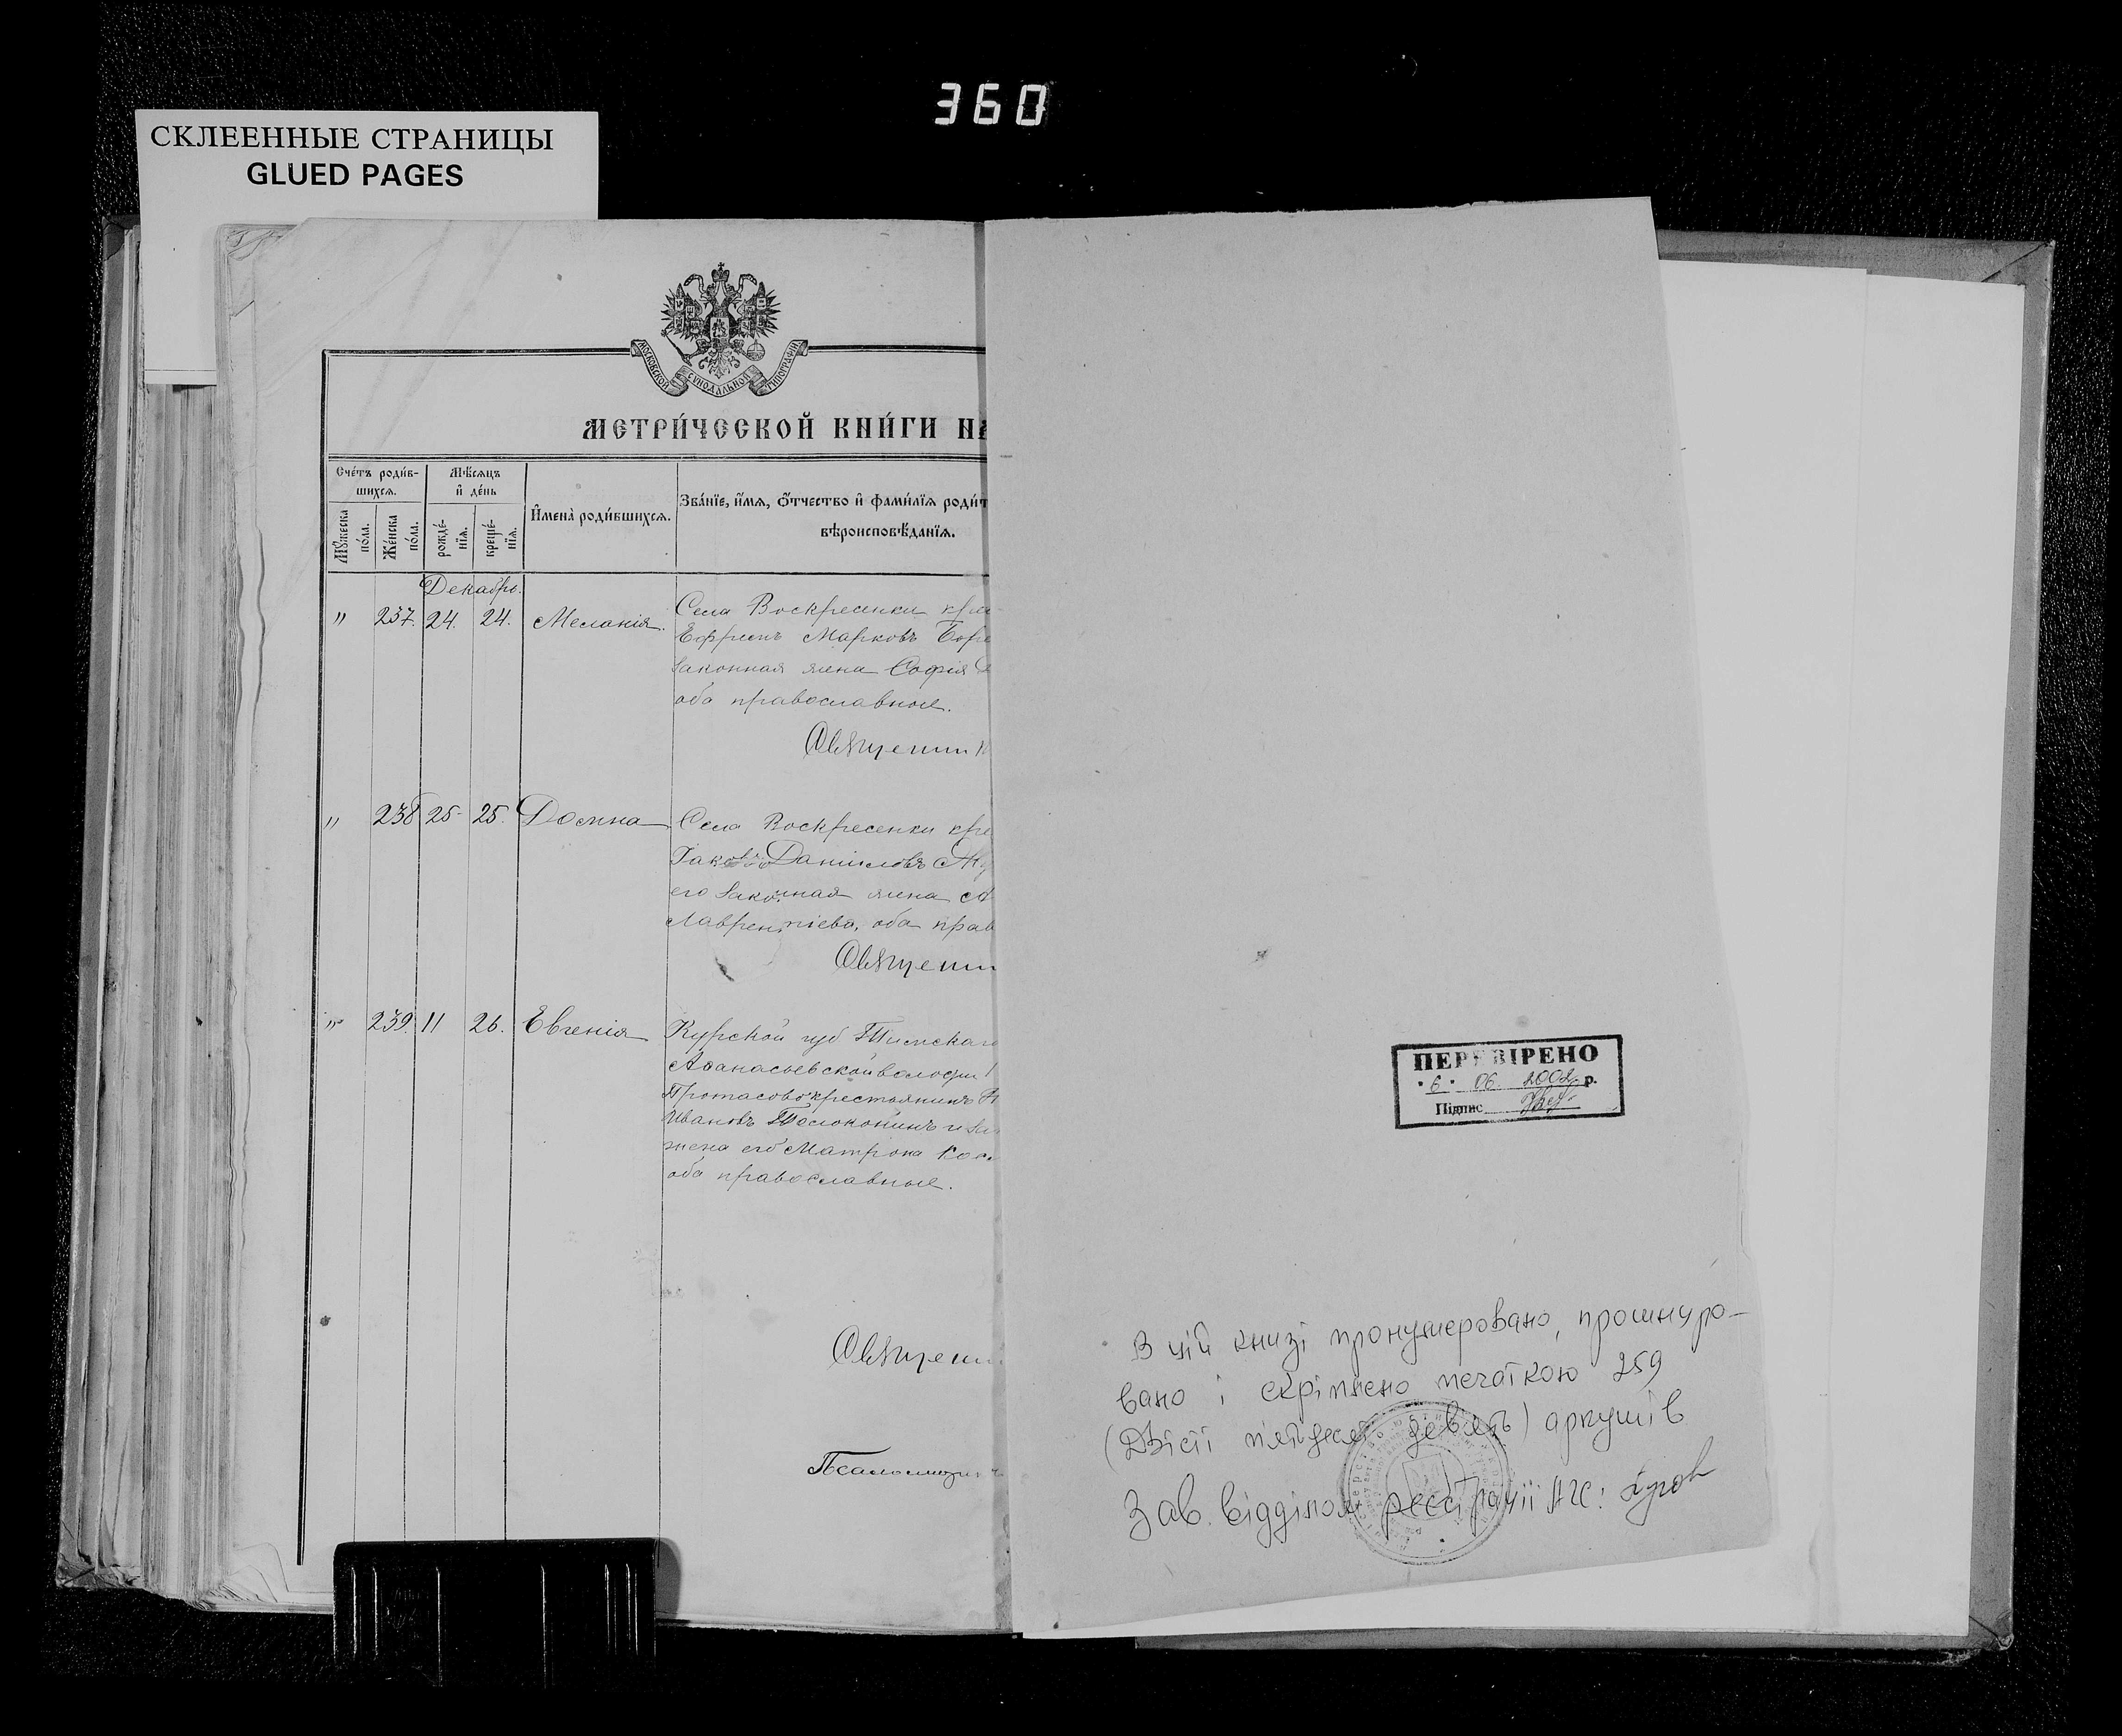 360
СКЛЕЕННЫЕ СТРАНИЦЫ
GLUED PAGES
МОСКОВСКОЙ СѴНОДАЛЬНОЙ ТИПОГРАФІИ
МЕТРИ́ЧЕСКОЙ КНИ́ГИ НА
Сче́тъ роди́в-
шихсѧ.
Мꙋ́жеска
по́ла.
Же́нска
по́ла.
Мѣ́сѧцъ
и҆ де́нь
рожде́-
нїѧ.
креще́-
нїѧ.
И҆мена̀ роди́вшихсѧ.
Зва́нїе, и҆́мѧ, ѻ҆́тчество и҆ фами́лїѧ роди́т
вѣроисповѣ́данїѧ.
Декабрь.
" 237. 24. 24. Меланія.
Села Воскресенки кре
Ефремъ Марковъ Боре
законная жена Софія
оба православные.
Священник
" 238 25 25. Домна
Села Воскресенки кре
Іаковъ Даниловъ
его законная жена А
Лаврентіева, оба прав
Священн
" 239. 11 26. Евгенія
Курской губ Тимскаго
Аѳанасьевской волости
Протасово крестьянинъ
Ивановъ и за
жена его Матрона Кос
оба православные.
Священ
Псаломщи
ПЕРЕВІРЕНО
"6" 06 2002 р.
Підпис
В цій книзі пронумеровано, прошнуро-
вано і скріплено печаткою 259
(Двісті п'ятдесят дев'ять) аркушів
Зав. відділом реєстрації АГС: